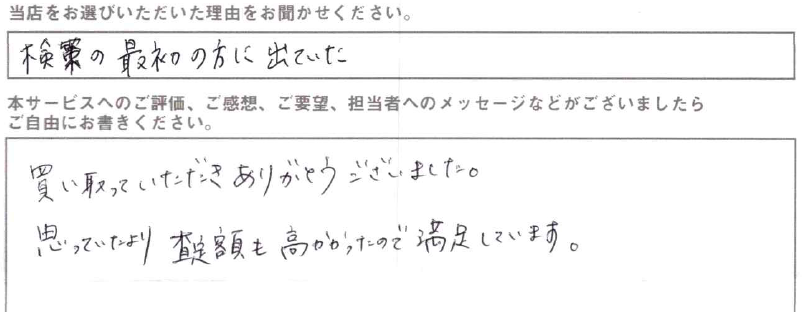 当店をお選びいただいた理由をお聞かせください。
検索の最初の方に出ていた
本サービスへのご評価、ご感想、ご要望、担当者へのメッセージなどがございましたら
ご自由にお書きください。
買い取っていただきありがとうございました。
思っていたより査定額も高かかったので満足しています。